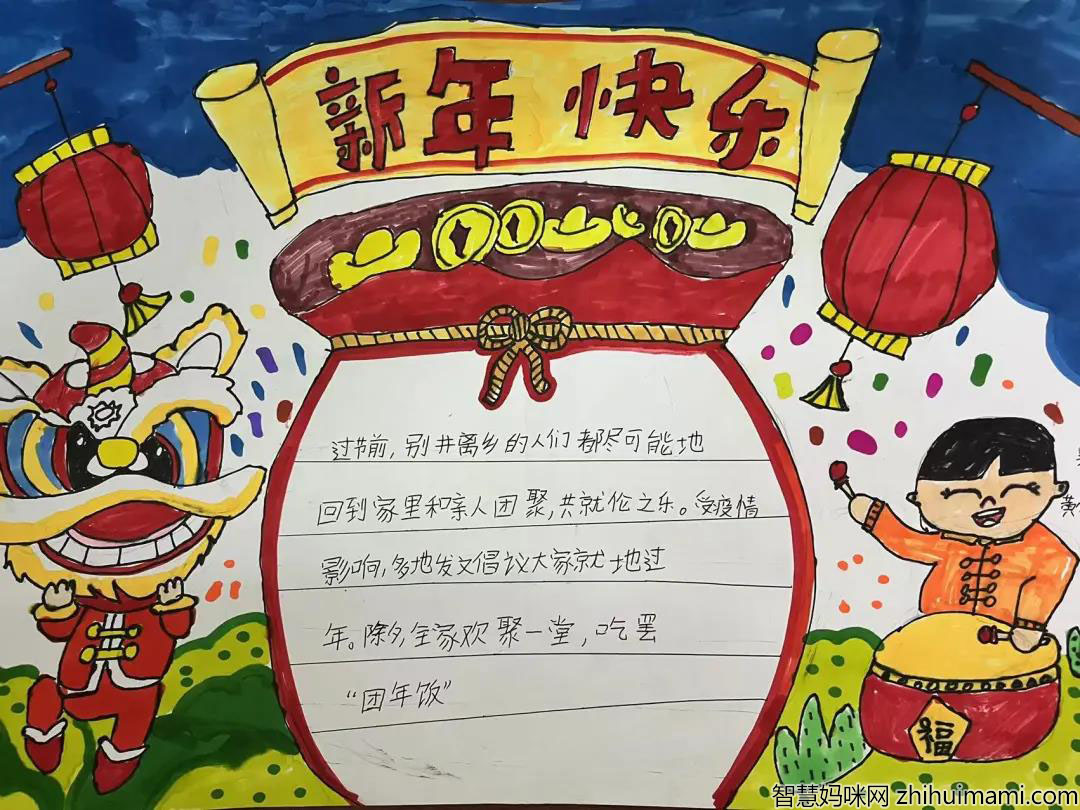 新年快乐
过节前,别井离乡的人们都尽可能地
回到家里和亲人团聚,共就伦之乐。受疫情
影响,多地发文倡议大家就地过
年。除夕,全家欢聚一堂,吃罢
“团年饭”
福
智慧妈咪网 zhihuimami.com